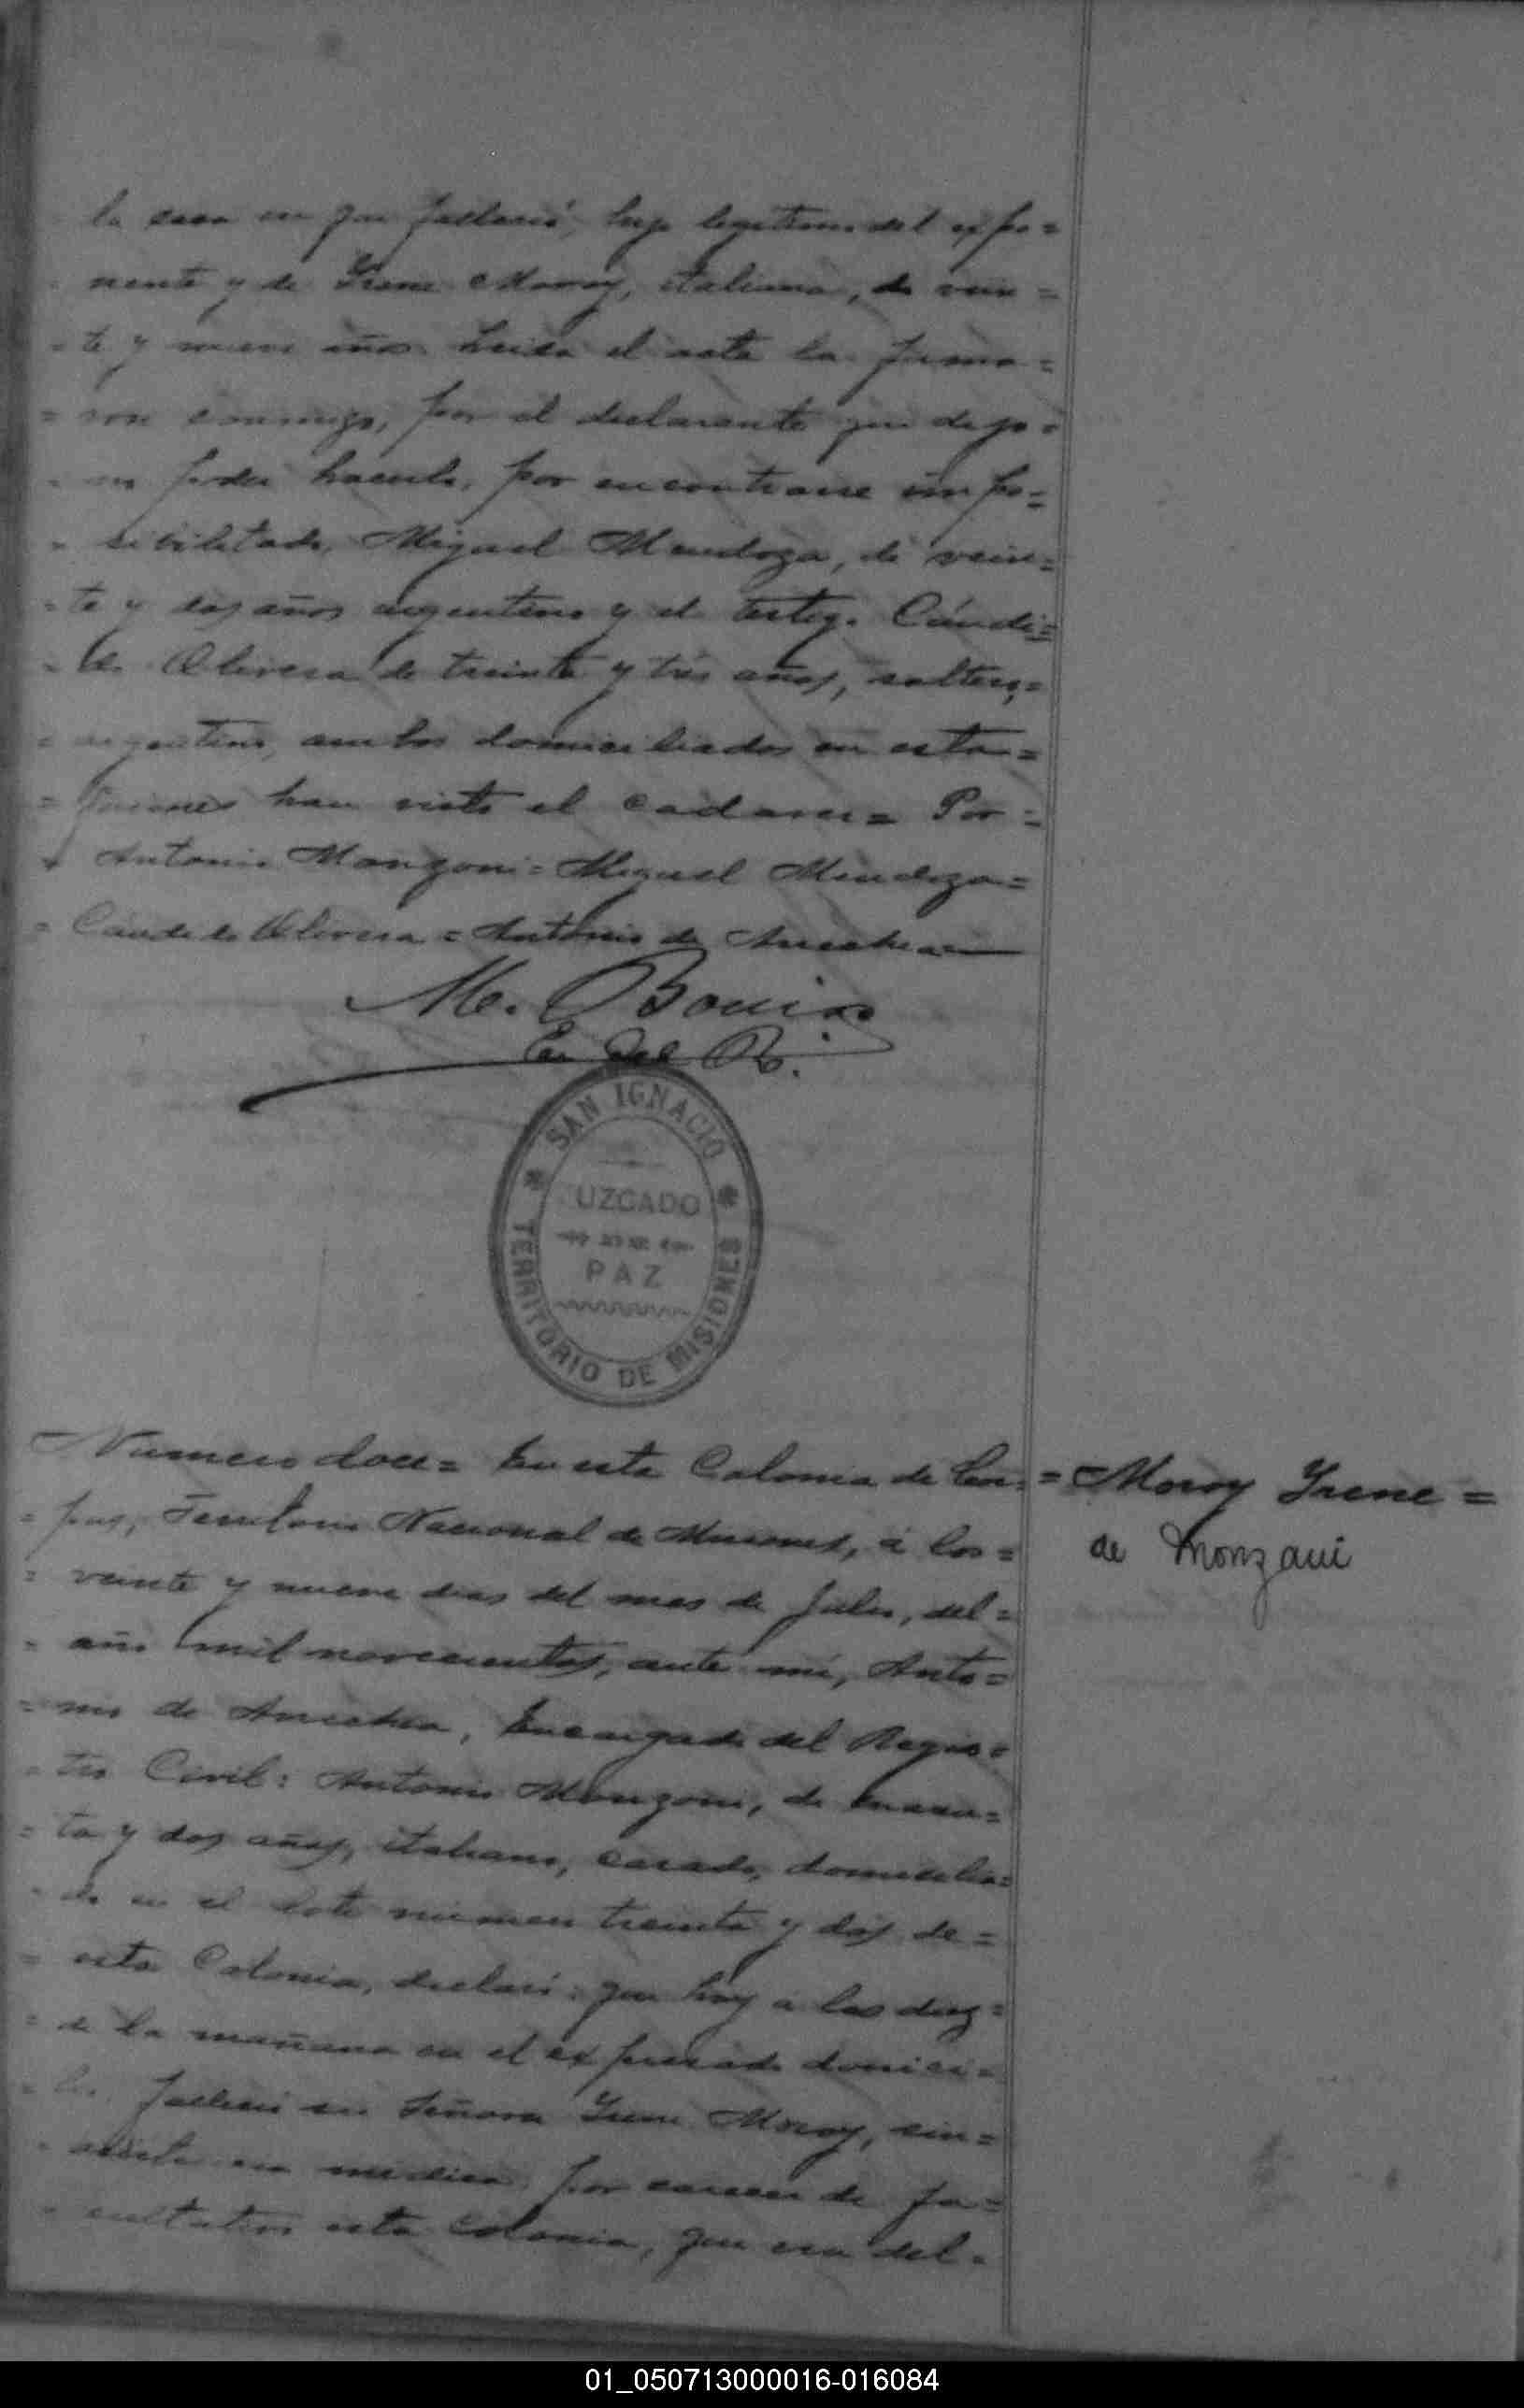 la casa en que falleció, hijo legitimo del expo=
nente y de Irene Moroy, italiana, de vein=
=te y nueve años. Leida el acta la firma=
=ron conmigo, por el declarante que dijo=
no poder hacerlo, por encontrarse impo=
sibilitado, Miguel Mendoza, de vein=
=te y dos años argentino y el testigo Cándi=
=do Olivera de treinta y tres años, soltero,=
=argentino, ambos domiciliados en esta=
=quienes han visto el cadaver= Por=
Antonio Monzoni= Miguel Mendoza=
=Candido Olivera= Antonio de Arrechea=
M. Bouix
En. del R.
SAN IGNACIO
JUZGADO
DE
PAZ
TERRITORIO DE MISIONES
Numero doce= En esta Colonia de Cor=
=pus, Territorio Nacional de Misiones, á los=
=veinte y nueve dias del mes de Julio, del=
=año mil novecientos, ante mi, Anto=
=nio de Arrechea, Encargado del Regis=
=tro Civil: Antonio Monzoni, de cuaren=
=ta y dos años, italiano, casado, domicilia=
=do en el lote número treinta y dos de=
=esta Colonia, declaró: que hoy a las diez=
=de la mañana en el expresado domici=
=lio falleció su Señora Irene Moroy, sin=
=asistencia medica por carecer de fa=
=cultativo esta Colonia, que era del=
=Moroy Irene=
de Monzani
01_050713000016-016084